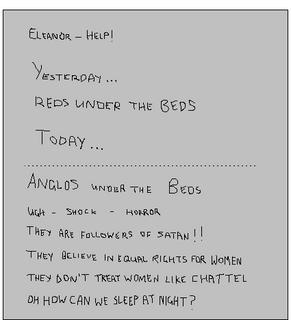 ELEANOR - HELP!
YESTERDAY...
REDS UNDER THE BEDS
TODAY...
ANGLOS UNDER THE BEDS
UGH - SHOCK - HORROR
THEY ARE FOLLOWERS OF SATAN!!
THEY BELIEVE IN EQUAL RIGHTS FOR WOMEN
THEY DON'T TREAT WOMEN LIKE CHATTEL
OH HOW CAN WE SLEEP AT NIGHT?